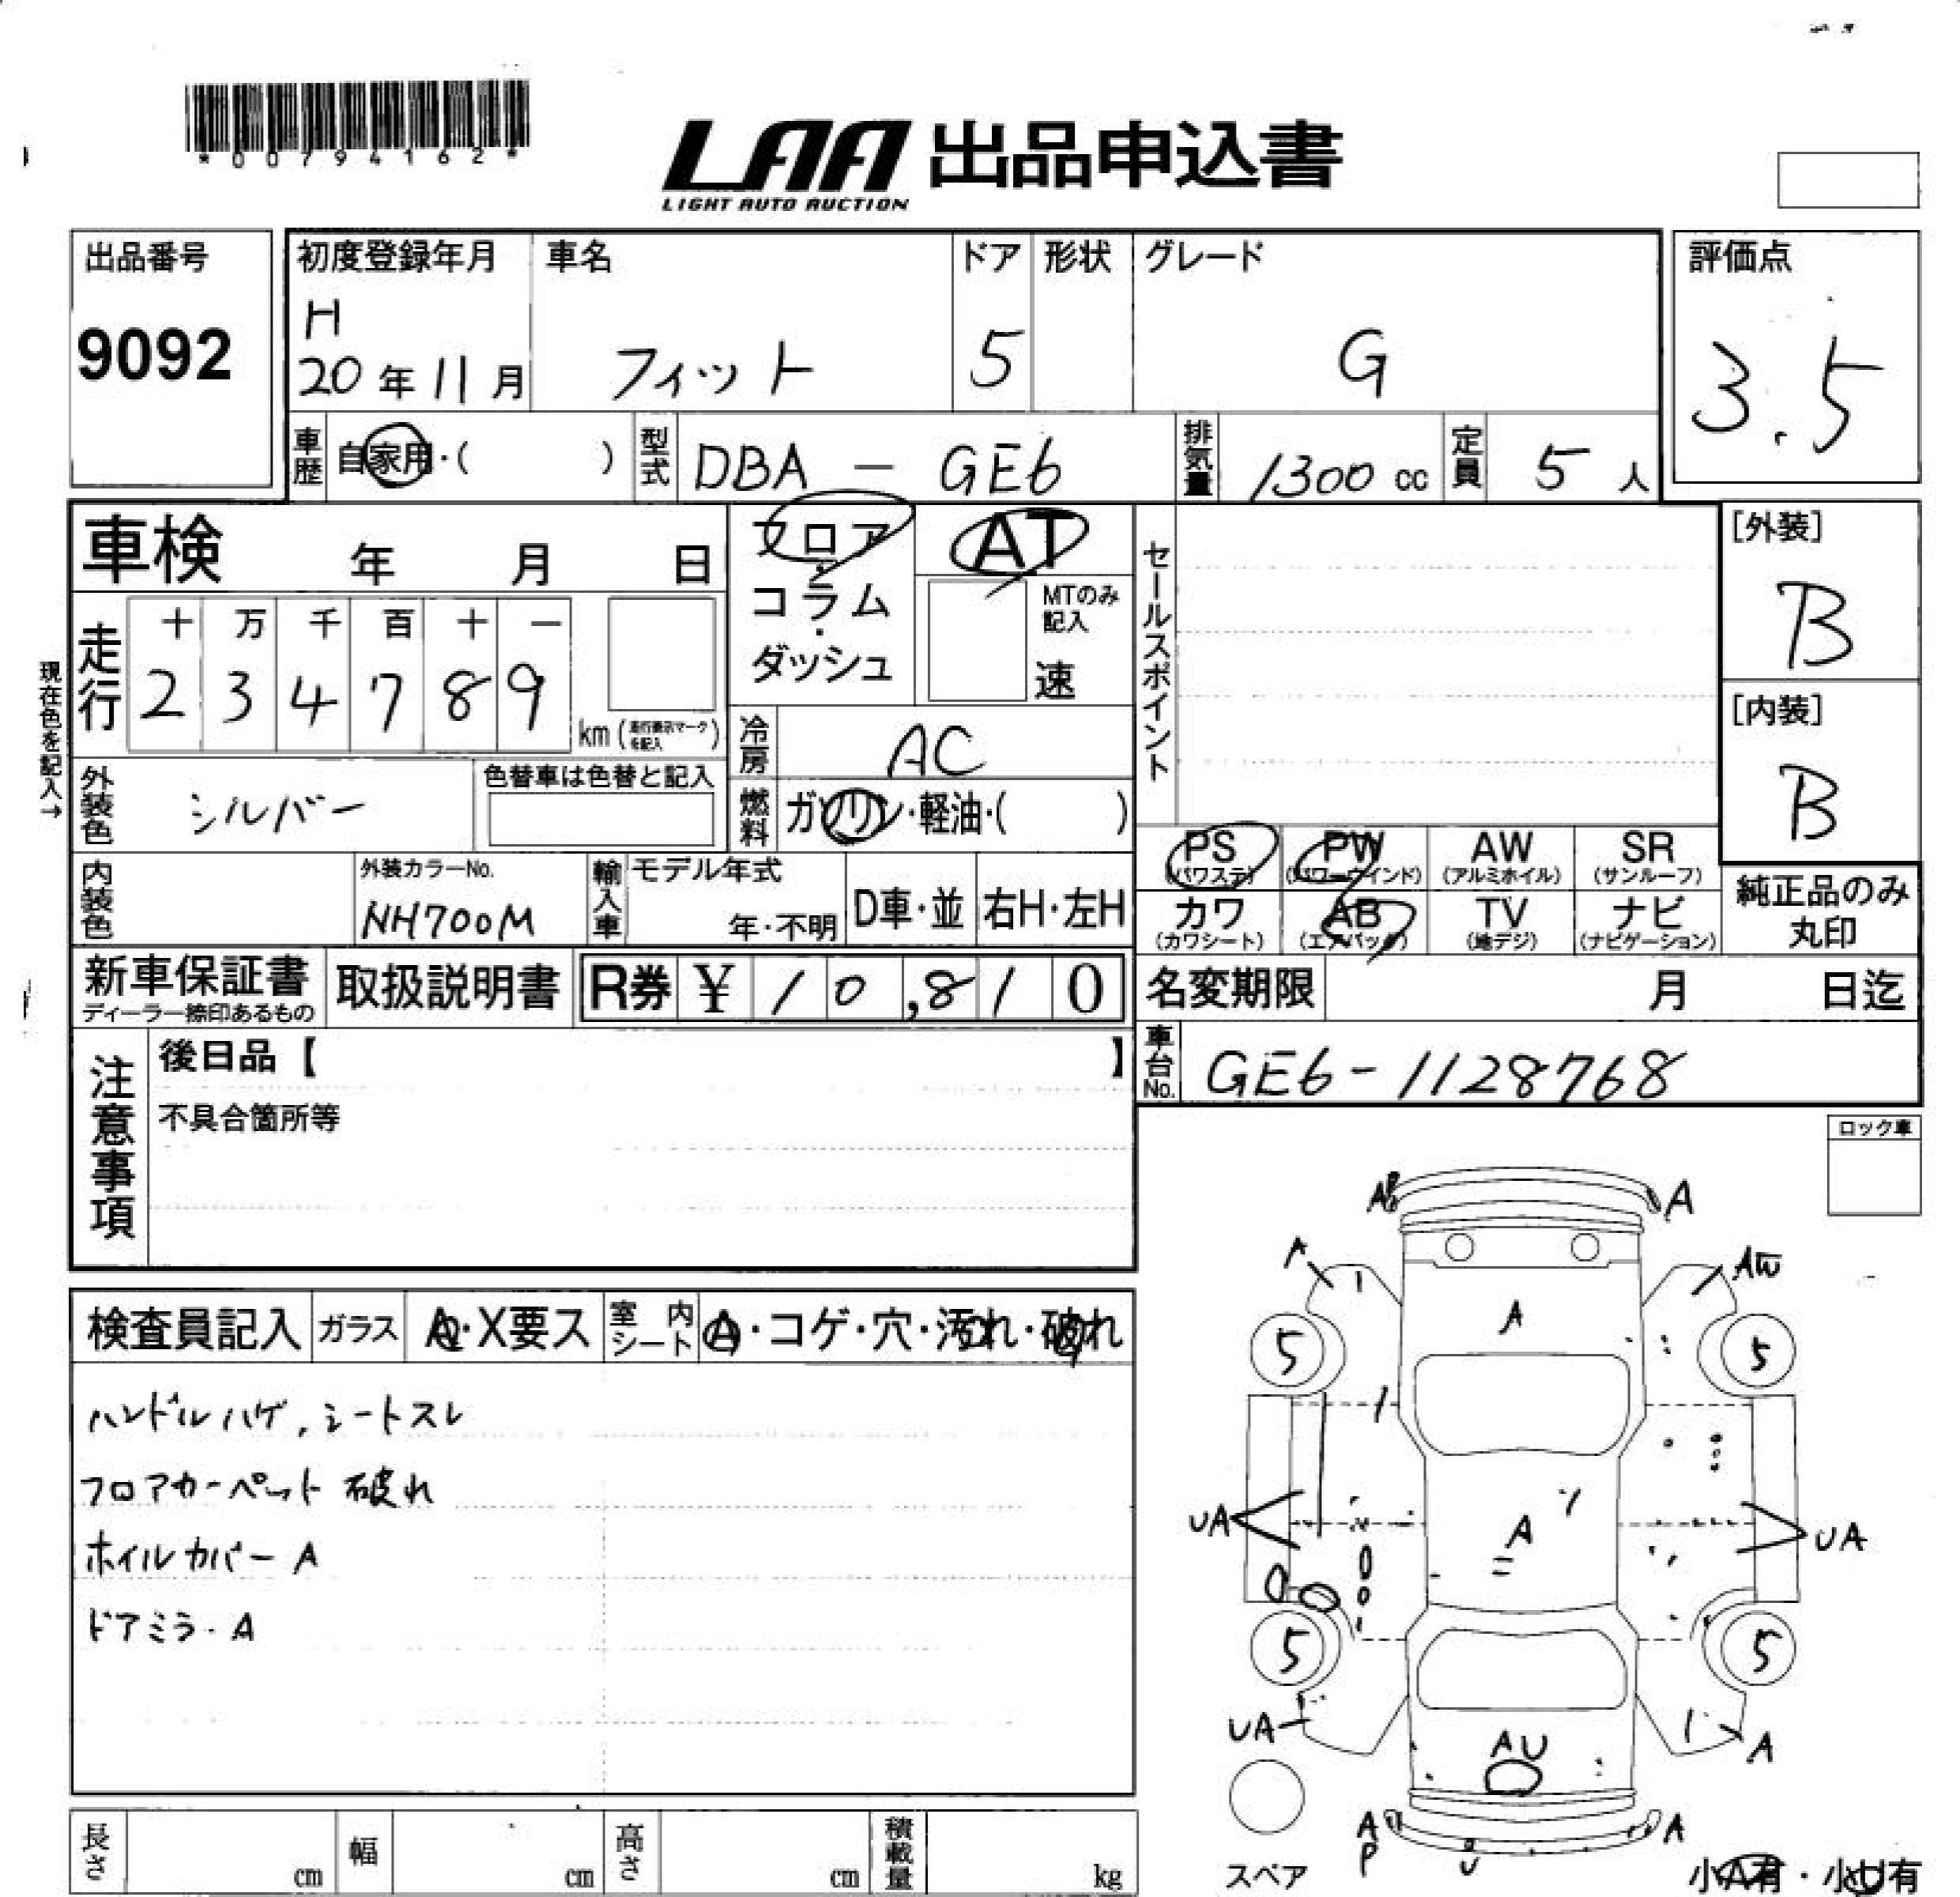 *00794162*
LAA 出品申込書
LIGHT AUTO AUCTION
出品番号
9092
初度登録年月
H
20年11月
車名
フィット
ドア
5
形状
グレード
G
評価点
3.5
車歴
自家用・( )
型式
DBA - GE6
排気量
1300 cc
定員
5人
車検 年 月 日
フロア・コラム・ダッシュ
AT
MTのみ記入
速
セールスポイント
[外装]
B
[内装]
B
現在色を記入→
走行
十 万 千 百 十 一
2 3 4 7 8 9
km(走行表示マークを記入)
冷房
AC
外装色
シルバー
色替車は色替と記入
燃料
ガソリン・軽油・( )
内装色
外装カラーNo.
NH700M
輸入車
モデル年式
年・不明
D車・並
右H・左H
PS (パワステ)
PW (パワーウインド)
AW (アルミホイル)
SR (サンルーフ)
カワ (カワシート)
AB (エアバック)
TV (地デジ)
ナビ (ナビゲーション)
純正品のみ丸印
新車保証書
ディーラー捺印あるもの
取扱説明書
R券 ¥ 10,810
名変期限 月 日迄
車台No.
GE6-1128768
注意事項
後日品【 】
不具合箇所等
ロック車
検査員記入
ガラス
A・X要ス
室内シート
A・コゲ・穴・汚れ・破れ
ハンドルハゲ,シートスレ
フロアカーペット 破れ
ホイルカバー A
ドアミラ・A
AP
A
A
AW
A
5
5
UA
A
UA
5
5
UA
AU
A
A
P
U
A
スペア
小A有・小U有
長さ cm
幅 cm
高さ cm
積載量 kg